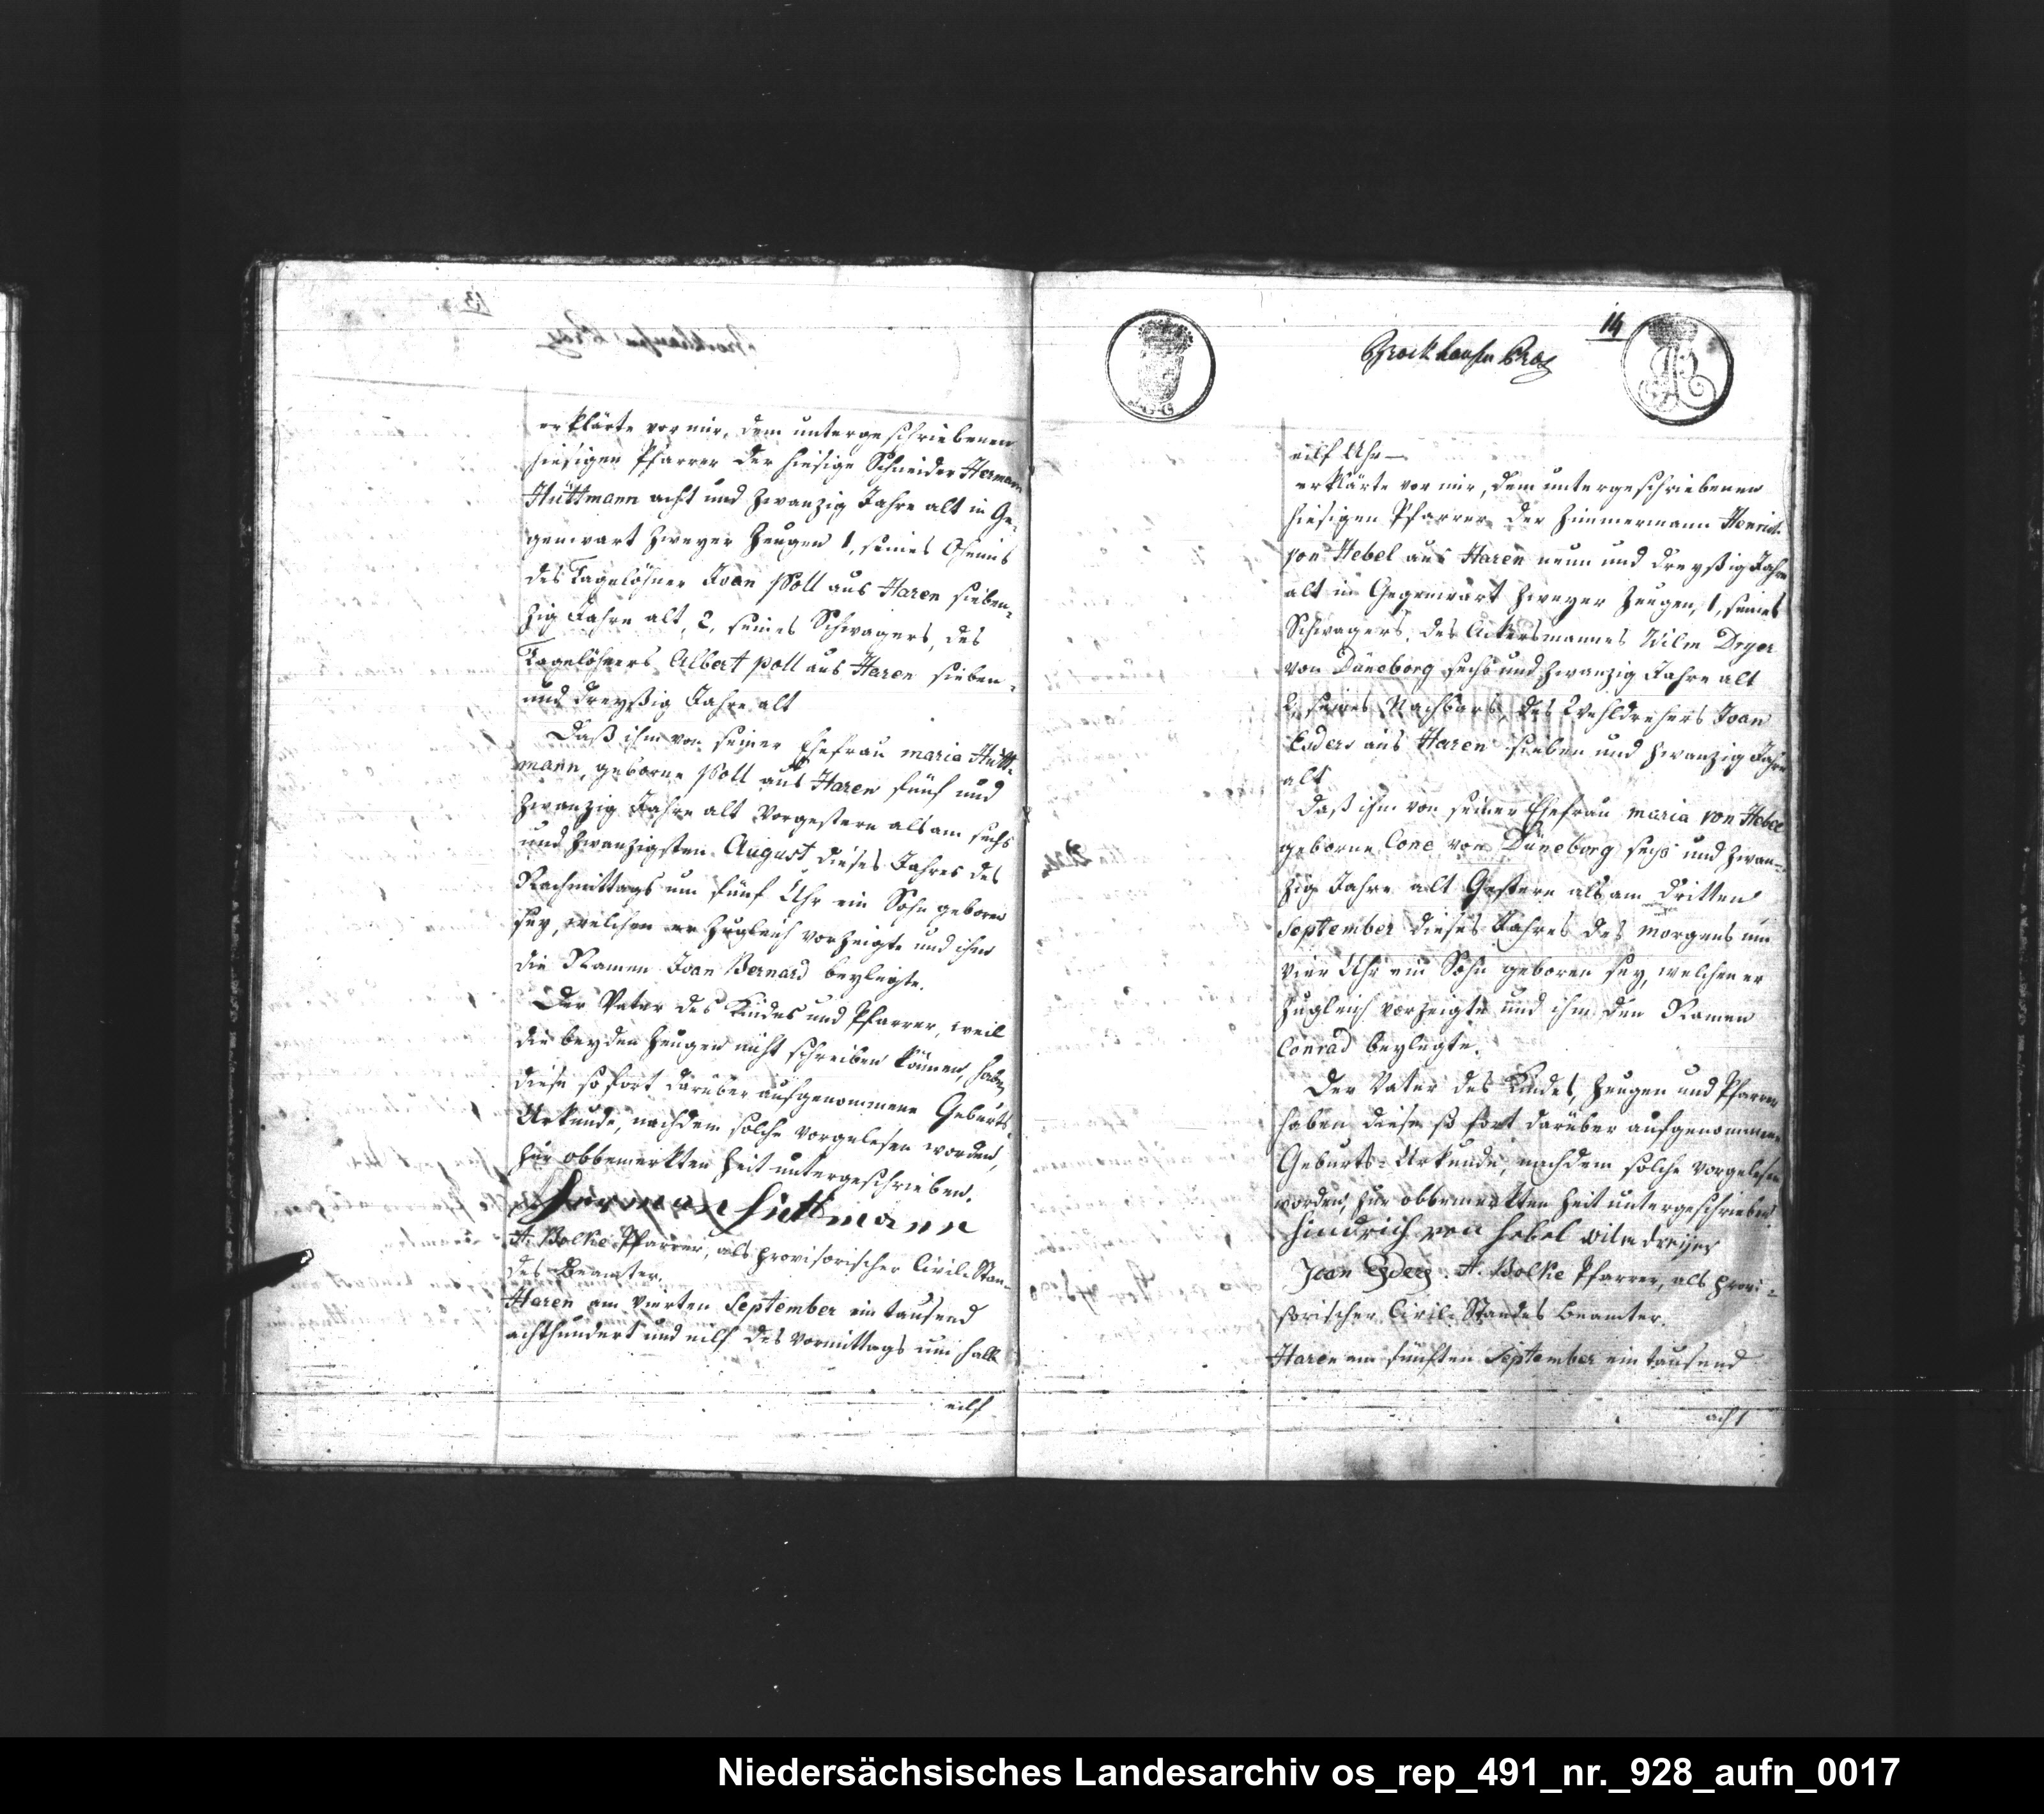 erklärte vor mir, dem untergeschriebenen
hiesigen Pfarrer der hiesige Schneider Herman
Hüttmann acht und zwanzig Jahre alt in Ge-
genwart zweyer Zeugen 1, seines Oheims
des Tagelöhner Joan Poll aus Haren sieben-
zig Jahre alt, 2, seines Schwagers, des
Tagelöhners Albert Poll aus Haren sieben-
und dreyßig Jahre alt
Daß ihm von seiner Ehefrau maria Hütt-
mann, geborne Poll aus Haren fünf und
zwanzig Jahre alt Vorgestern als am sechs
und zwanzigsten August dieses Jahres des
Nachmittags um fünf Uhr ein Sohn geboren
sey, welchen er zugleich vorzeigte und ihm
die Namen Joan Bernard beylegte.
Der Vater des Kindes und Pfarrer, weil
die beyden Zeugen nicht schreiben können, haben
diese so fort darüber aufgenommene Geburts-
Urkunde, nachdem solche vorgelesen worden,
zur obbemerkten Zeit untergeschrieben.
Herman Hüttmann
A. Bolke Pfarrer, als provisorischer Civil-Stan-
des Beamter.
Haren am vierten September ein tausend
achthundert und eilf des Vormittags um halb
eilf
14
Brockhausen
eilf Uhr
erklärte vor mir, dem untergeschriebenen
hiesigen Pfarrer der Zimmermann Henrich
von Hebel aus Haren neun und dreyßig Jahre
alt in Gegenwart zweyer Zeugen, 1, seines
Schwagers, des Ackersmannes Wilm Dryer
von Düneborg sechs und zwanzig Jahre alt
2, seines Nachbars, des Joan
Esders aus Haren sieben und zwanzig Jahre
alt
Daß ihm von seiner Ehefrau maria von Hebel
geborne Cone von Düneborg sechs und zwan-
zig Jahre alt Gestern als am dritten
September dieses Jahres des morgens um
vier Uhr ein Sohn geboren sey, welchen er
zugleich vorzeigte und ihm den Namen
Conrad beylegte.
Der Vater des Kindes, Zeugen und Pfarrer
haben diese so fort darüber aufgenommene
Geburts-Urkunde, nachdem solche vorgelesen
worden, zur obbemerkten Zeit untergeschrieben
hindrich von hebel wilm dreijer
Joan Esders. A. Bolke Pfarrer, als provi-
sorischer Civil-Standes Beamter.
Haren am fünften September ein tausend
acht
Niedersächsisches Landesarchiv os_rep_491_nr._928_aufn_0017